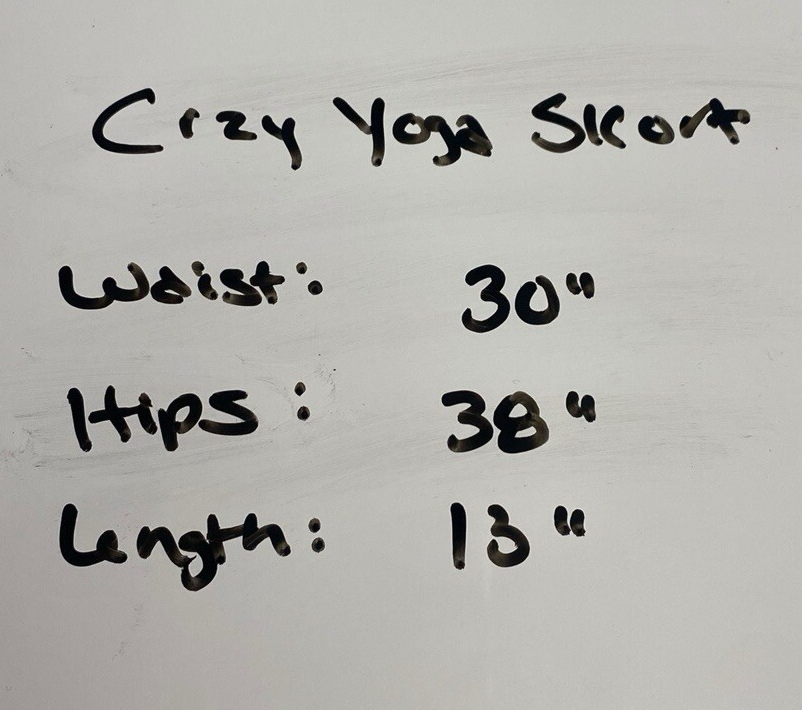 Crzy Yoga Skort
Waist: 30"
Hips: 38"
Length: 13"